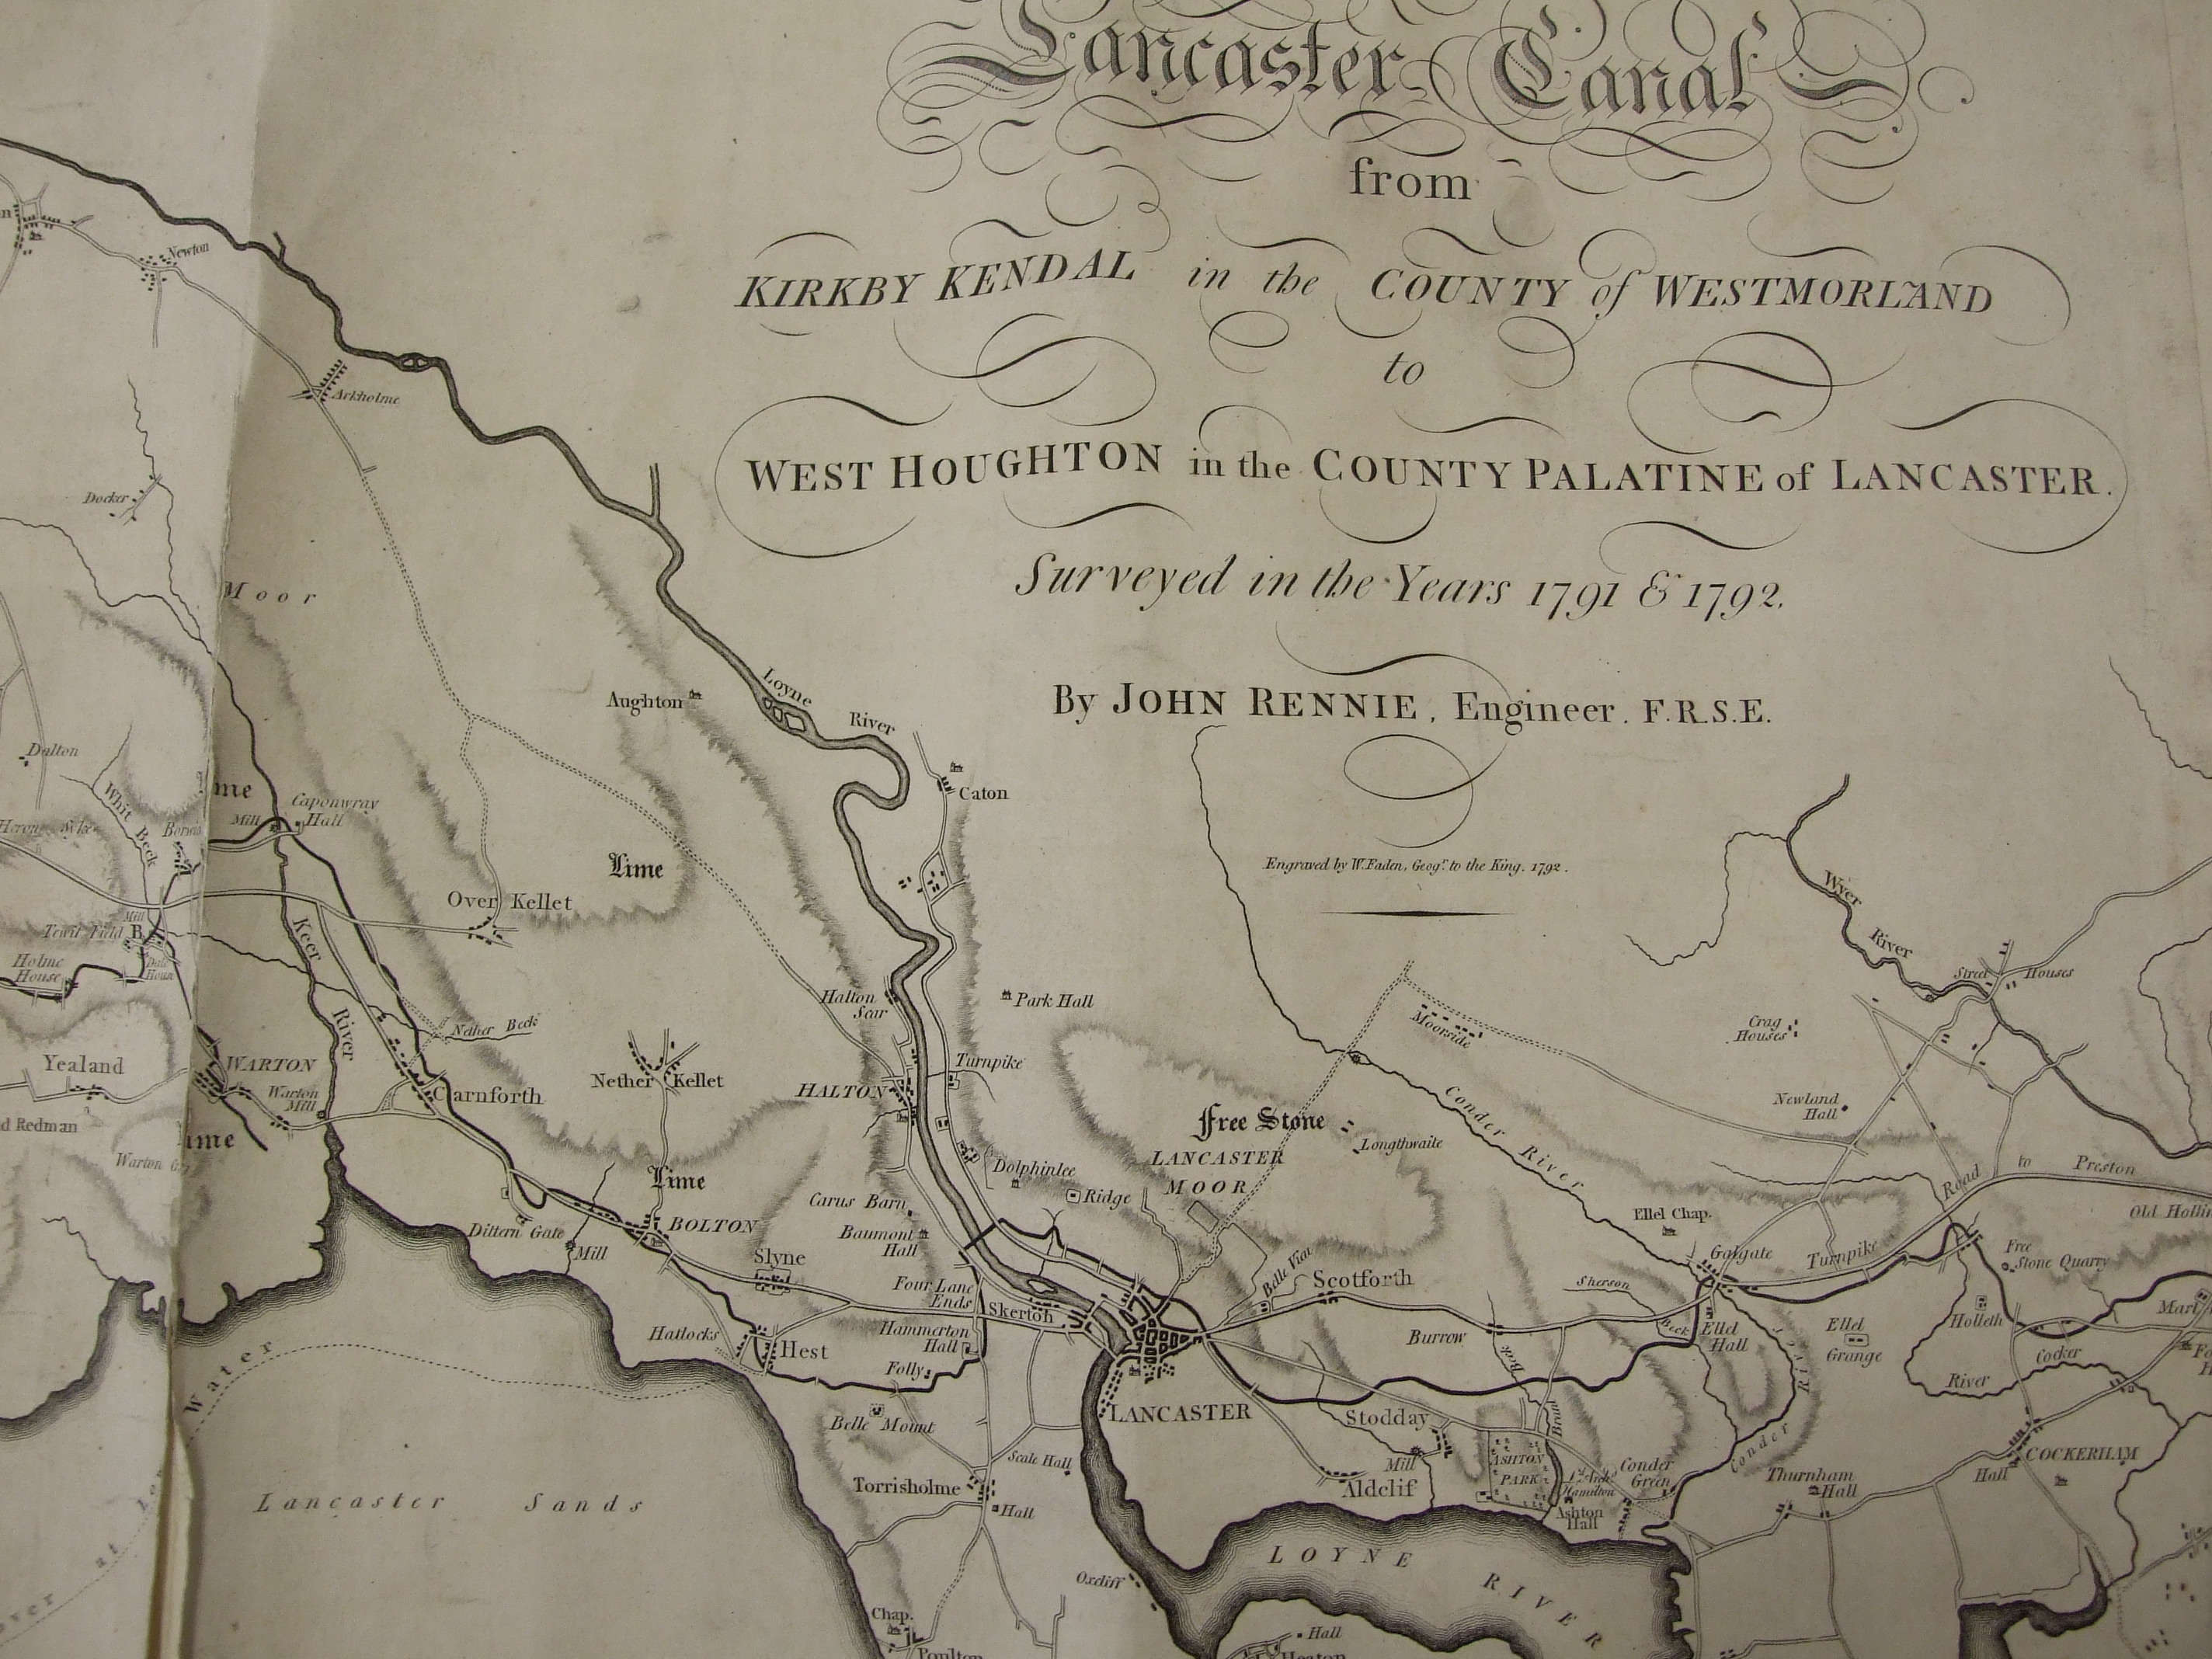 Lancaster Canal
from
KIRKBY KENDAL in the COUNTY of WESTMORLAND
to
WEST HOUGHTON in the COUNTY PALATINE of LANCASTER.
Surveyed in the Years 1791 & 1792.
By JOHN RENNIE, Engineer. F.R.S.E.
Engraved by W. Faden, Geogr. to the King. 1792.
Newton
Arkholme
Docker
Moor
Dalton
Whit Beck
Aughton
Loyne
River
Caton
Caponwray
Hall
Mill
Lime
Over Kellet
Mill
Tewit Field
B
Holme
House
Keer
River
Nether Beck
Yealand
WARTON
Warton
Mill
Carnforth
d Redman
Nether Kellet
Lime
Halton
Scar
HALTON
Park Hall
Turnpike
Dolphinlee
Ridge
Free Stone
LANCASTER
MOOR
Longthwaite
Moorside
Conder River
Wyer
River
Street Houses
Crag
Houses
Newland
Hall
Road to Preston
Ellel Chap.
Galgate
Turnpike
Free
Stone Quarry
Dittern Gate
Mill
BOLTON
Slyne
Carus Barn
Baumont
Hall
Four Lane
Ends
Skerton
Hammerton
Hall
Folly
Hatlocks
Hest
Belle Mount
Belle Vue
Scotforth
Burrow
Beck
Sherson
Beck
Ellel
Hall
Ellel
Grange
Holleth
Cocker
River
LANCASTER
Stodday
Mill
Aldclif
ASHTON
PARK
Ashton
Hall
Conder
Green
Conder
River
Thurnham
Hall
COCKERHAM
Hall
Scale Hall
Torrisholme
Hall
Oxcliff
Chap.
Poulton
Hall
Heaton
LOYNE RIVER
Lancaster Sands
Water